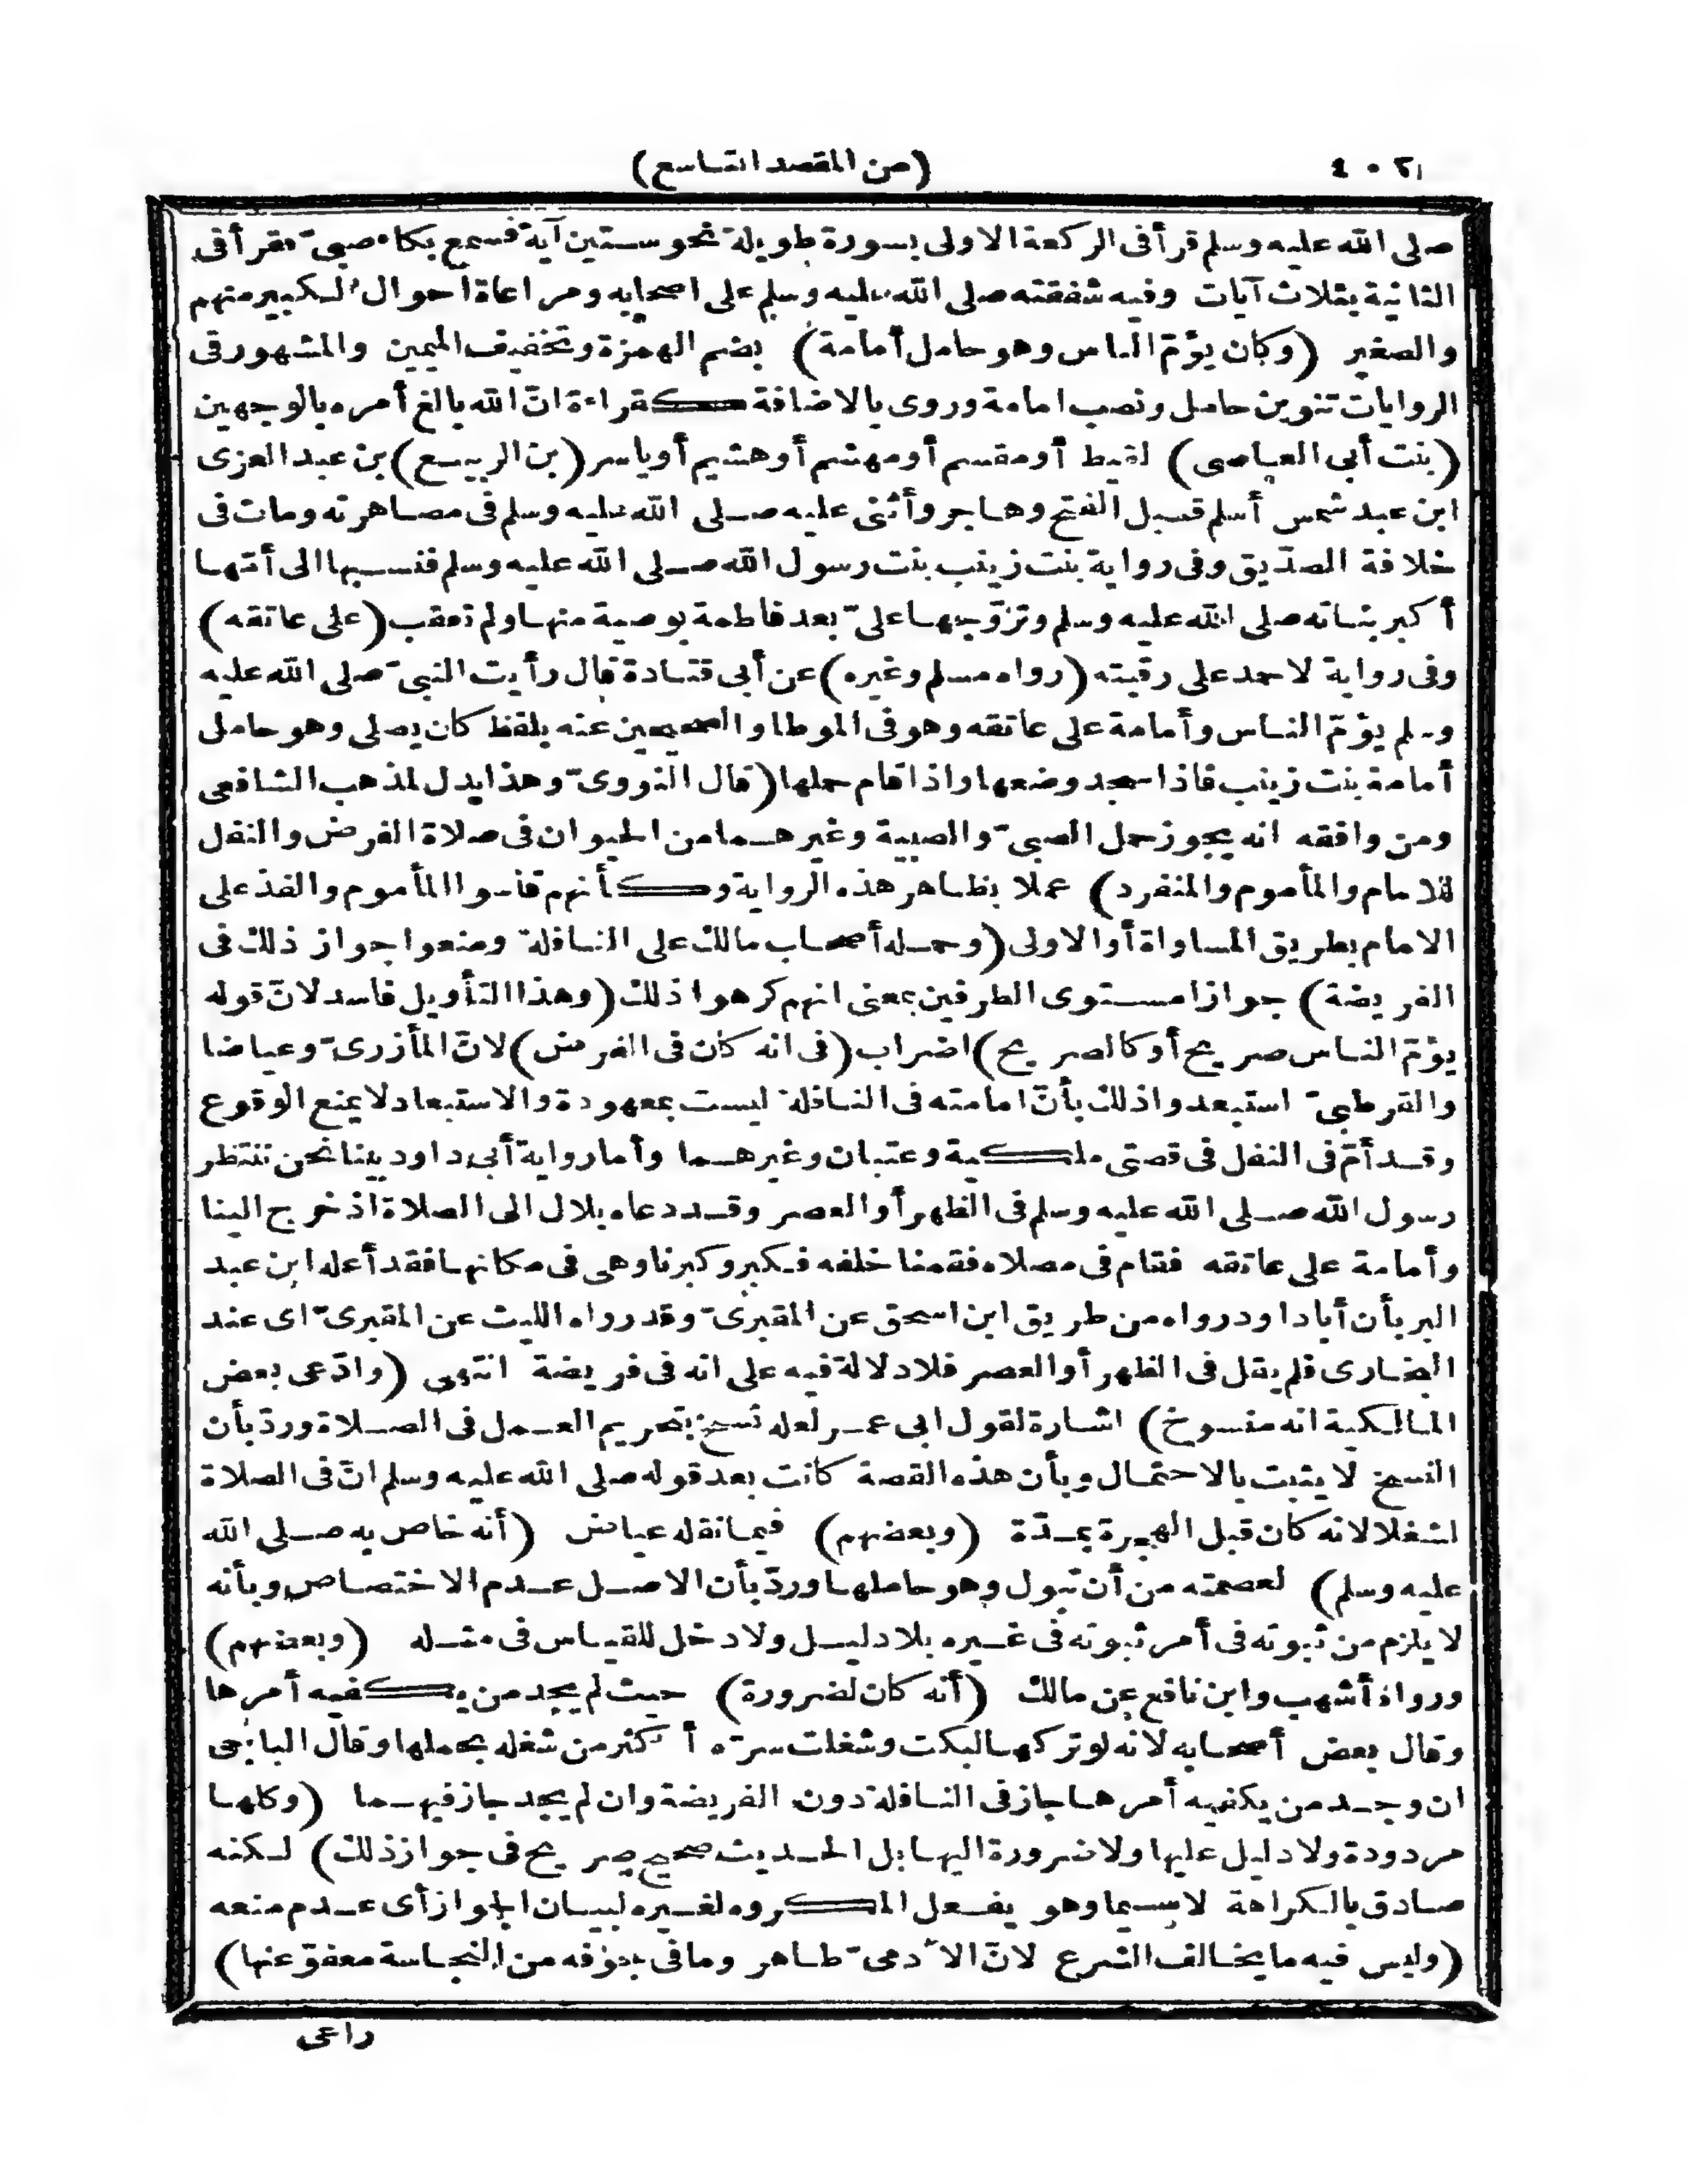 ٤٠٢
(من المقصد التاسع)
صلى الله عليه وسلم قرأ فى الركعة الاولى بسورة طويلة نحو ستين آية فسمع بكاء صبىّ فقرأ فى
الثانية بثلاث آيات وفيه شفقته صلى الله عليه وسلم على اصحابه ومراعاة أحوال الكبير منهم
والصغير (وكان يؤمّ الناس وهو حامل أمامة) بضم الهمزة وتخفيف الميمين والمشهور فى
الروايات تنوين حامل ونصب امامة وروى بالاضافة كقراءة انّ الله بالغ أمره بالوجهين
(بنت أبى العاصى) لقيط أو مقسم أو مهشم أو هشيم أو ياسر (بن الربيع) بن عبد العزى
ابن عبد شمس أسلم قبل الفتح وهاجر وأثنى عليه صلى الله عليه وسلم فى مصاهرته ومات فى
خلافة الصدّيق وفى رواية بنت زينب بنت رسول الله صلى الله عليه وسلم فنسبها الى أمّها
أكبر بناته صلى الله عليه وسلم وتزوّجها علىّ بعد فاطمة بوصية منها ولم تعقب (على عاتقه)
وفى رواية لاحمد على رقبته (رواه مسلم وغيره) عن أبى قتادة قال رأيت النبىّ صلى الله عليه
وسلم يؤمّ الناس وأمامة على عاتقه وهو فى الموطا والصحيحين عنه بلفظ كان يصلى وهو حامل
أمامة بنت زينب فاذا سجد وضعها واذا قام حملها (قال النووىّ وهذا يدل لمذهب الشافعى
ومن وافقه انه يجوز حمل الصبىّ والصبية وغيرهما من الحيوان فى صلاة الفرض والنفل
للامام والمأموم والمنفرد) عملا بظاهر هذه الرواية وكأنهم قاسوا المأموم والفذ على
الامام بطريق المساواة أو الاولى (وحمله أصحاب مالك على النافلة ومنعوا جواز ذلك فى
الفريضة) جوازا مستوى الطرفين بمعنى انهم كرهوا ذلك (وهذا التأويل فاسد لانّ قوله
يؤمّ الناس صريح أو كالصريح) اضراب (فى انه كان فى الفرض) لانّ المأزرىّ وعياضا
والقرطبىّ استبعدوا ذلك بأنّ امامته فى النافلة ليست بمعهودة والاستبعاد لا يمنع الوقوع
وقد أمّ فى النفل فى قصتى مليكية وعتبان وغيرهما وأما رواية أبى داود بينا نحن ننتظر
رسول الله صلى الله عليه وسلم فى الظهر أو العصر وقد دعاه بلال الى الصلاة اذ خرج الينا
وأمامة على عاتقه فقام فى مصلاه فقمنا خلفه فكبر وكبرنا وهى فى مكانها فقد أعله ابن عبد
البر بأن أبا داود رواه من طريق ابن اسحق عن المقبرىّ وقد رواه الليث عن المقبرىّ اى عند
البخارى فلم يقل فى الظهر أو العصر فلا دلالة فيه على انه فى فريضة انتهى (وادّعى بعض
المالكية انه منسوخ) اشارة لقول ابى عمر لعله نسخ بتحريم العمل فى الصلاة وردّ بأن
النسخ لا يثبت بالاحتمال وبأن هذه القصة كانت بعد قوله صلى الله عليه وسلم انّ فى الصلاة
لشغلا لانه كان قبل الهجرة بمدّة (وبعضهم) فيما نقله عياض (أنه خاص به صلى الله
عليه وسلم) لعصمته من أن تبول وهو حاملها وردّ بأن الاصل عدم الاختصاص وبأنه
لا يلزم من ثبوته فى أمر ثبوته فى غيره بلا دليل ولا دخل للقياس فى مثله (وبعضهم)
ورواه أشهب وابن نافع عن مالك (أنه كان لضرورة) حيث لم يجد من يكفيه أمرها
وقال بعض أصحابه لانه لو تركها لبكت وشغلت سرّه أكثر من شغله بحملها وقال الباجى
ان وجد من يكفيه أمرها جاز فى النافلة دون الفريضة وان لم يجد جاز فيهما (وكلها
مردودة ولا دليل عليها ولا ضرورة اليها بل الحديث صحيح صريح فى جواز ذلك) لكنه
صادق بالكراهة لا سيما وهو يفعل المكروه لغيره لبيان الجواز أى عدم منعه
(وليس فيه ما يخالف الشرع لانّ الآدمىّ طاهر وما فى جوفه من النجاسة معفوّ عنها)
راعى